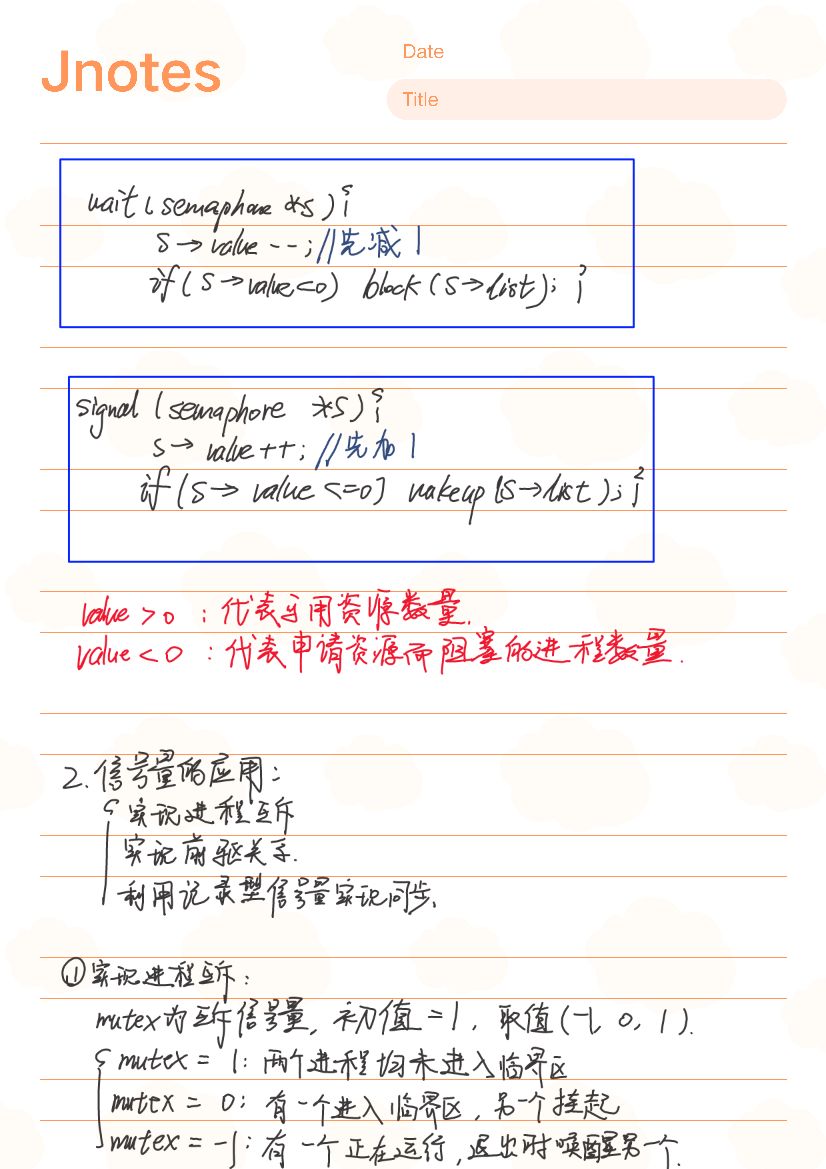 Jnotes
Date
Title
wait(semaphore *s){
s→value--; //先减1
if(s→value<0) block(s→list); }
signal(semaphore *s){
s→value++; //先加1
if(s→value<=0) wakeup(s→list); }
value>0：代表可用资源数量.
value<0：代表申请资源而阻塞的进程数量.
2.信号量的应用：
实现进程互斥
实现前驱关系.
利用记录型信号量实现同步、
①实现进程互斥：
mutex为互斥信号量, 初值=1, 取值(-1, 0, 1).
mutex=1：两个进程均未进入临界区
mutex=0：有一个进入临界区, 另一个挂起
mutex=-1：有一个正在运行, 退出时唤醒另一个.